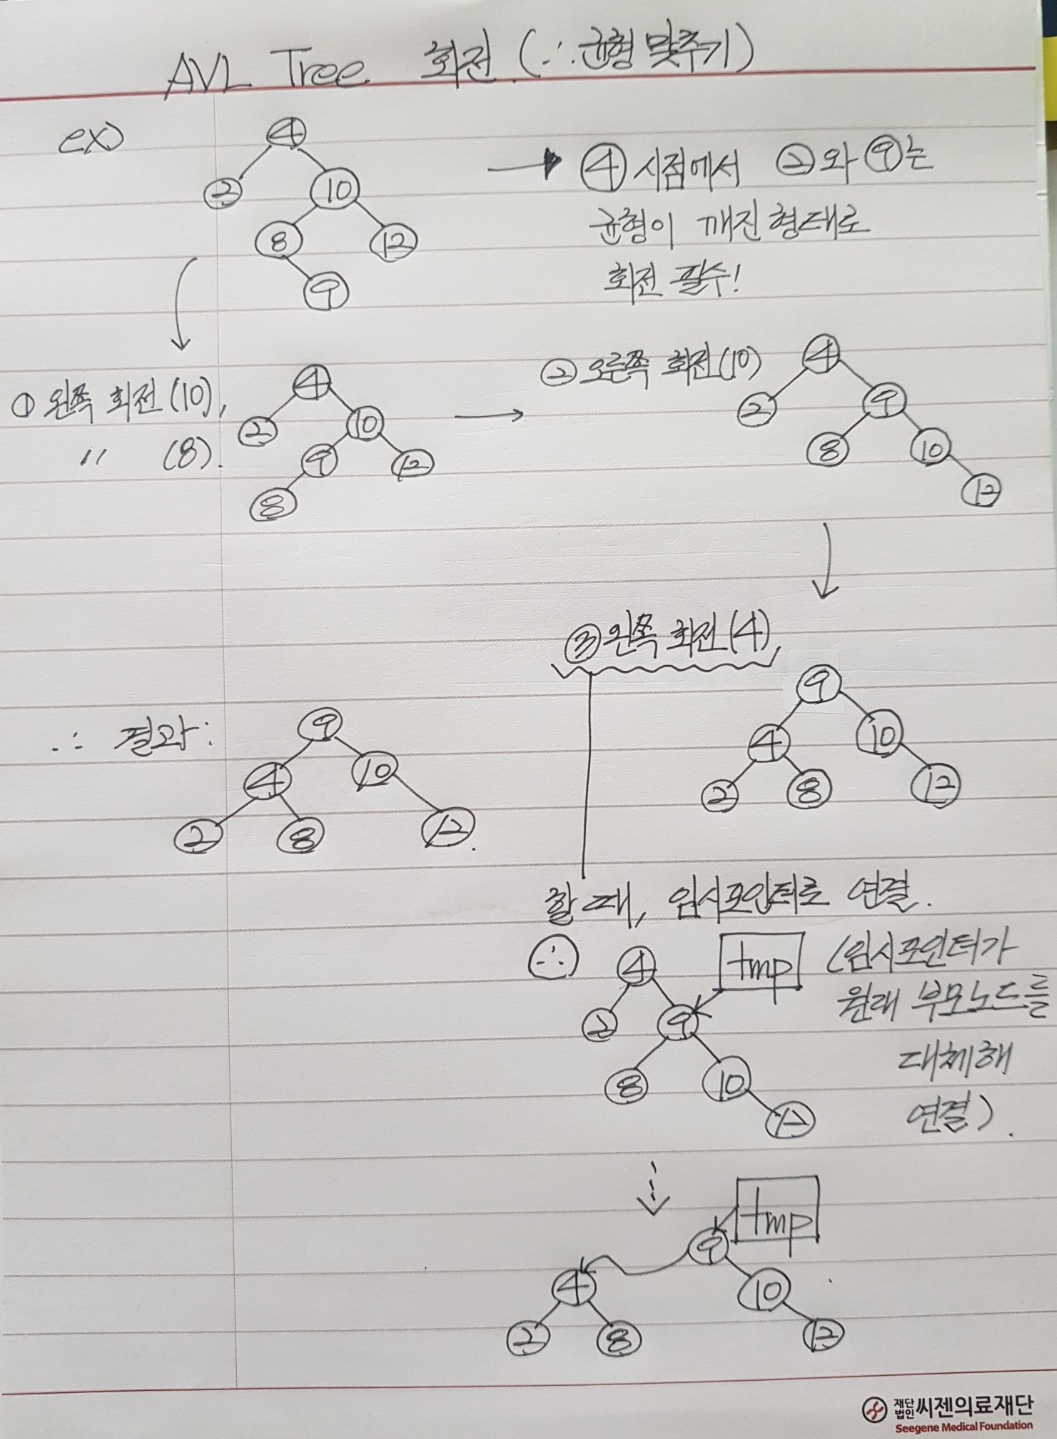 AVL Tree 회전 (∴균형 맞추기)
ex)
4
2 10
8 12
9
→ ④ 시점에서 ②와 ⑨는
균형이 깨진 형태로
회전 필수!
① 왼쪽 회전(10),
〃 (8).
4
2 10
9 12
8
② 오른쪽 회전(10)
4
2 9
8 10
12
③ 왼쪽 회전(4),
9
4 10
2 8 12
∴ 결과:
9
4 10
2 8 12
할 때, 임시포인터로 연결.
∴
4 tmp
2 9
8 10
12
(임시포인터가
원래 부모노드를
대체해
연결).
tmp
9
4 10
2 8 12
재단법인 씨젠의료재단
Seegene Medical Foundation